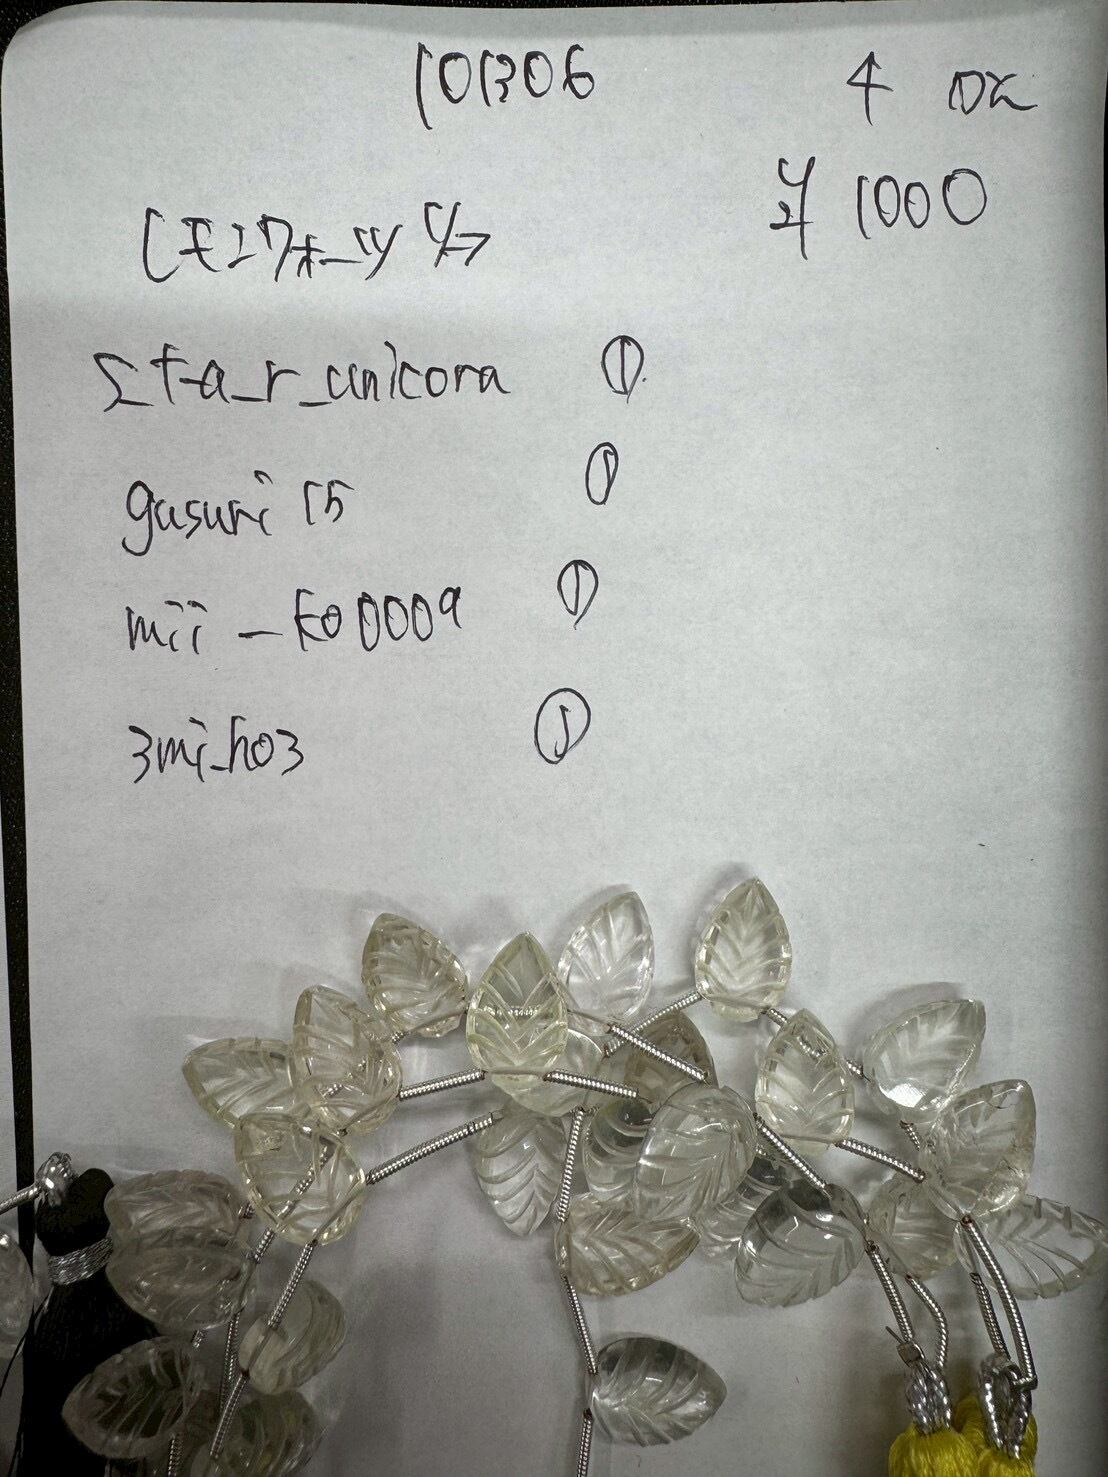 101306
4 pz
¥ 1000
レモンクォーツ リーフ
sta_r_unicorn ①
gusuri 15 ①
mii_ko0009 ①
3mi_ho3 ①